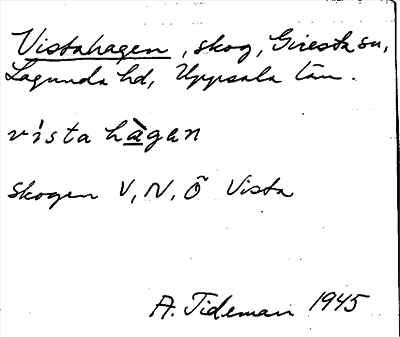 Vistahagen, skog, Giresta sn,
Lagunda hd, Uppsala län.
vísta hàgen
skogen V, N, Ö Vista
A. Tideman 1945